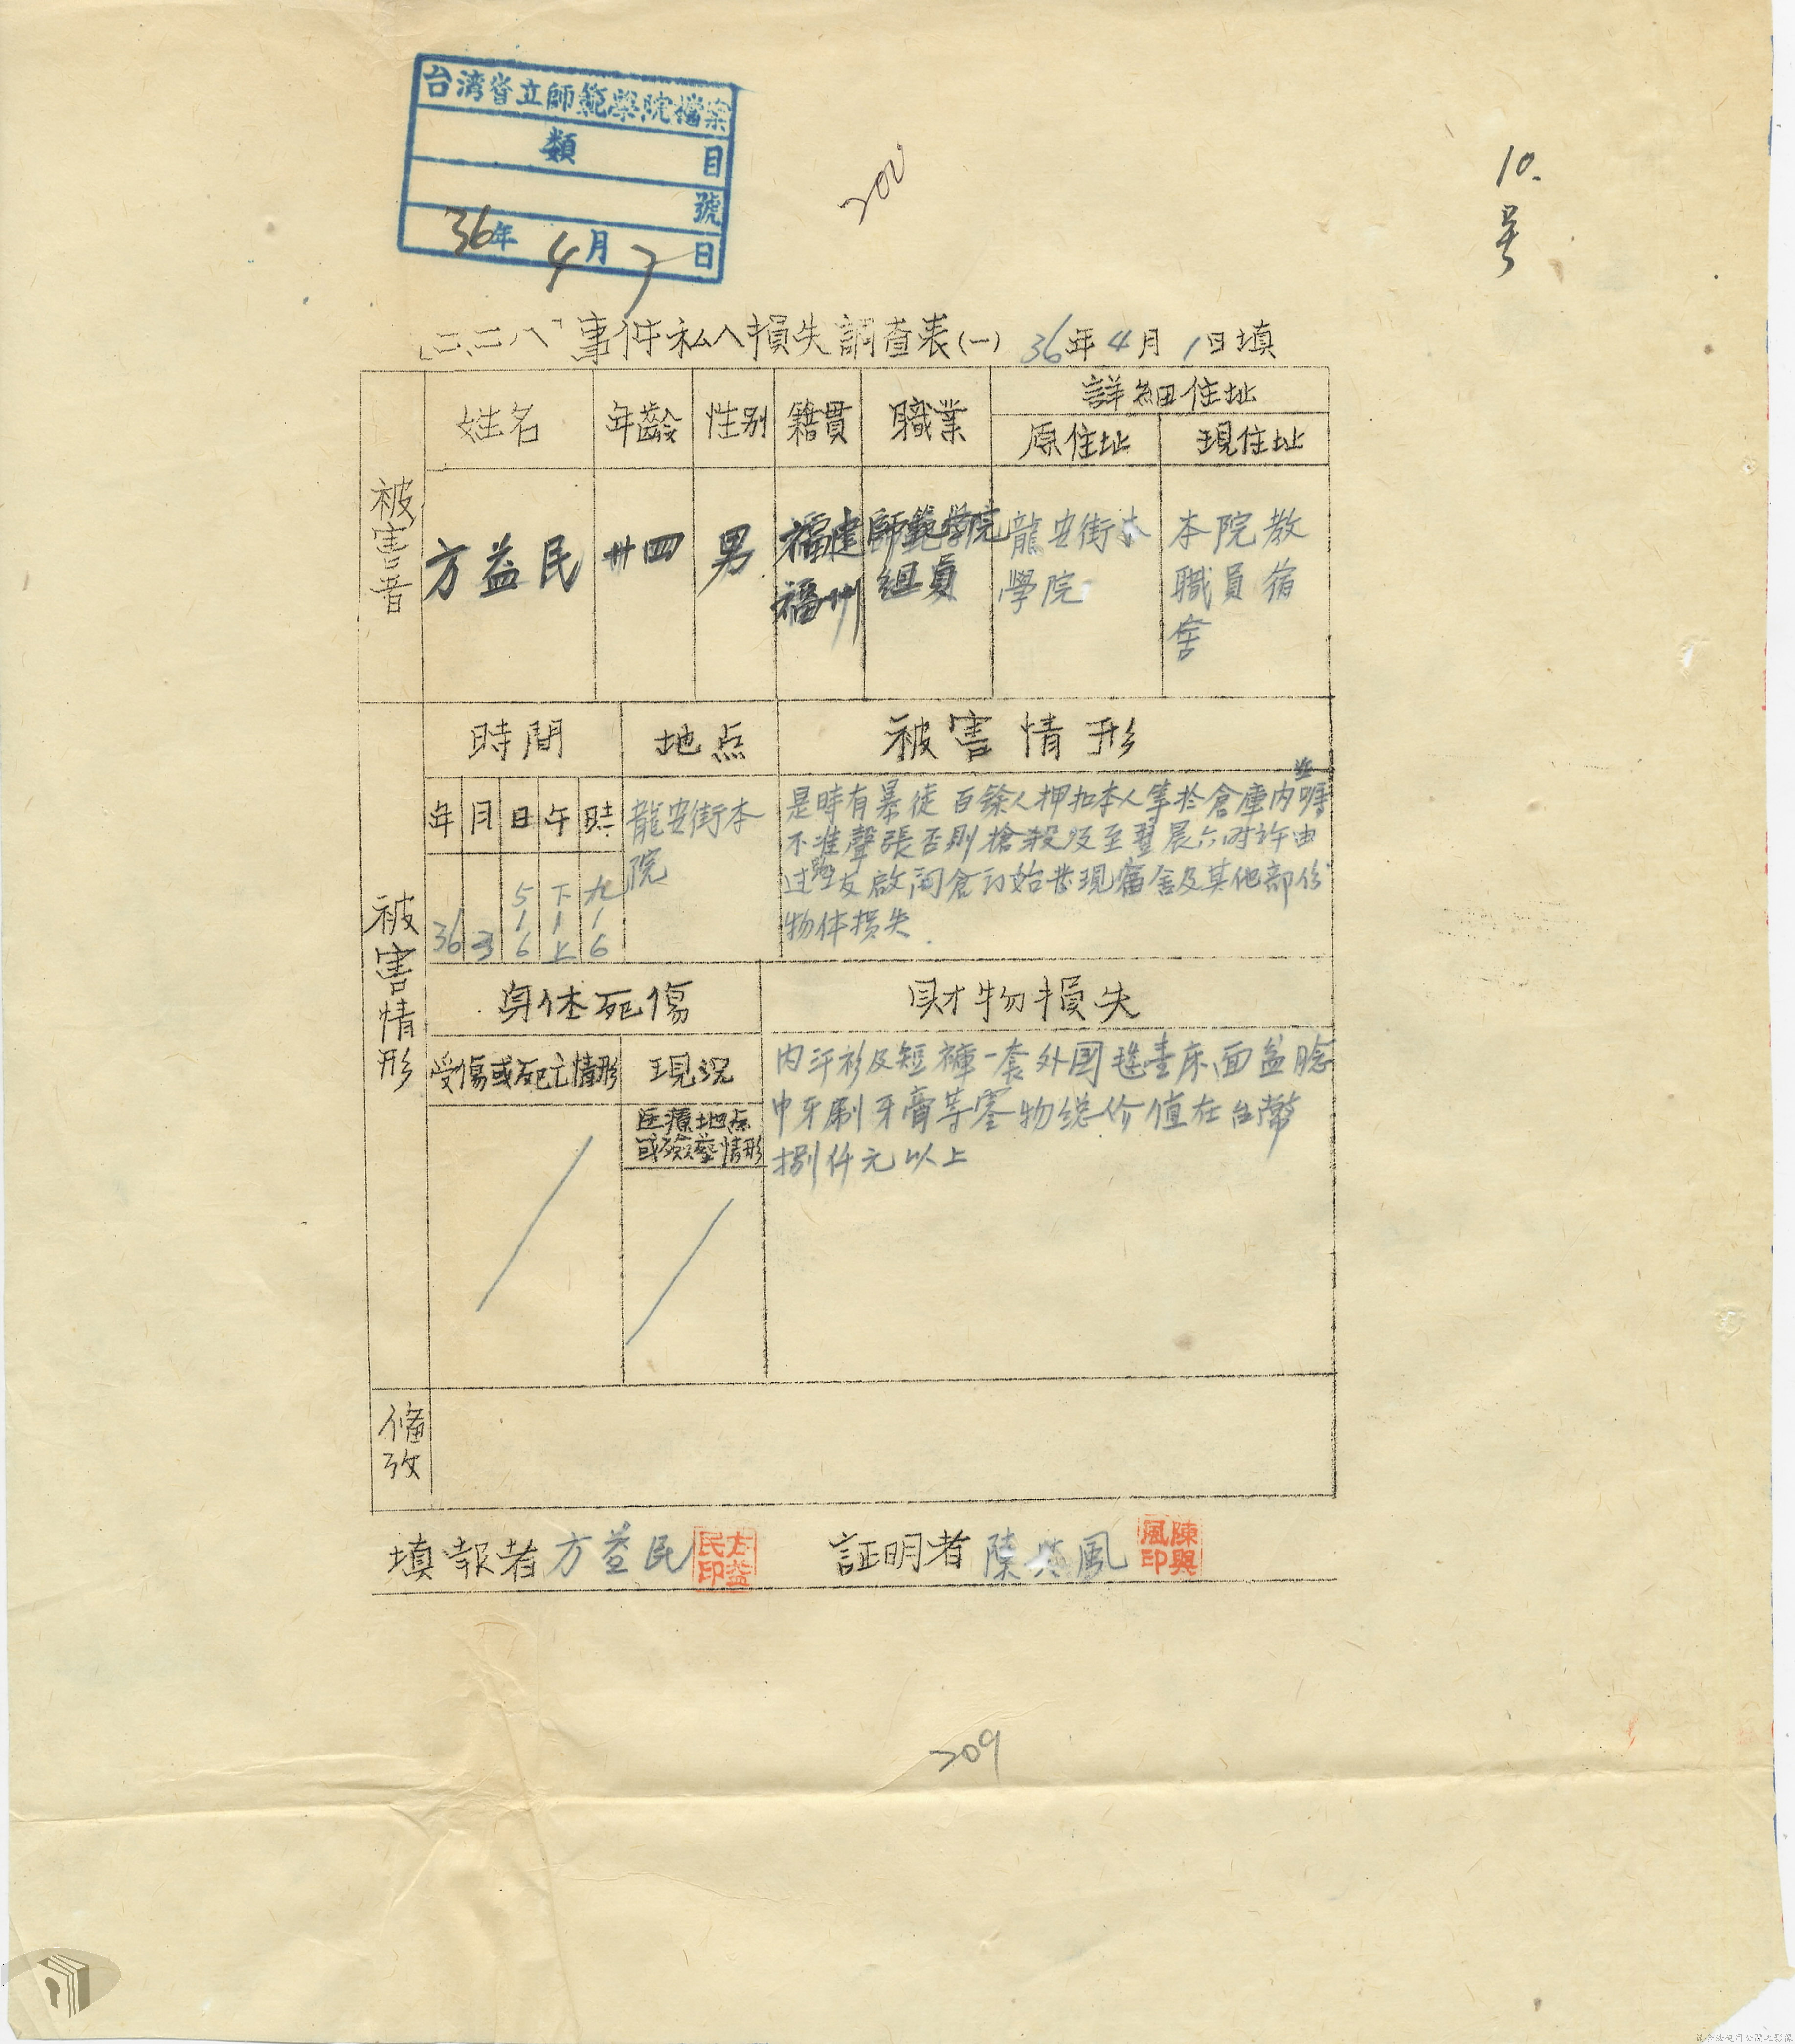 台湾省立師範學院檔案
類 目
號
36年 4月 7日
200
10.
号
「二、二八」事件私人損失調查表(一) 36年4月1日填
被害者
姓名 年齡 性別 籍貫 職業 詳細住址
原住址 現住址
方益民 卅四 男 福建福州 師範學院組員 龍安街本學院 本院教職員宿舍
被害情形
時間 地点 被害情形
年 月 日 午 時
36 3 5 1 6 下 1 上 九 1 6
龍安街本
院
是時有暴徒百餘人押扣本人等於倉庫内並嘱
不准聲張否則槍殺及至翌晨六时许由
过路友啟開倉门始发現宿舍及其他部份
物体损失.
身体死傷 財物損失
受傷或死亡情形 現況
医療地点
或殮塟情形
内汗衫及短褲一套外國毯壹床面盆臉
巾牙刷牙膏等零物総价值在台幣
捌仟元以上
俻攷
填報者 方益民 方益民印 証明者 陳興風 陳興風印
209
請合法使用公開之影像